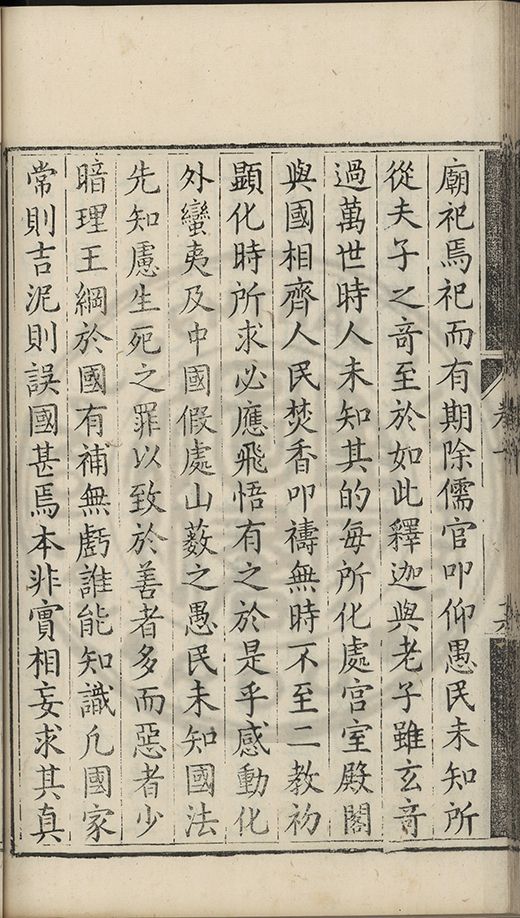 廟祀焉祀而有期除儒官叩仰愚民未知所
從夫子之竒至於如此釋迦與老子雖玄竒
過萬世時人未知其的每所化處宫室殿閣
與國相齊人民焚香叩禱無時不至二教初
顯化時所求必應飛悟有之於是乎感動化
外蠻夷及中國假處山藪之愚民未知國法
先知慮生死之罪以致於善者多而惡者少
暗理王綱於國有補無虧誰能知識凡國家
常則吉泥則誤國甚焉本非實相妄求其真